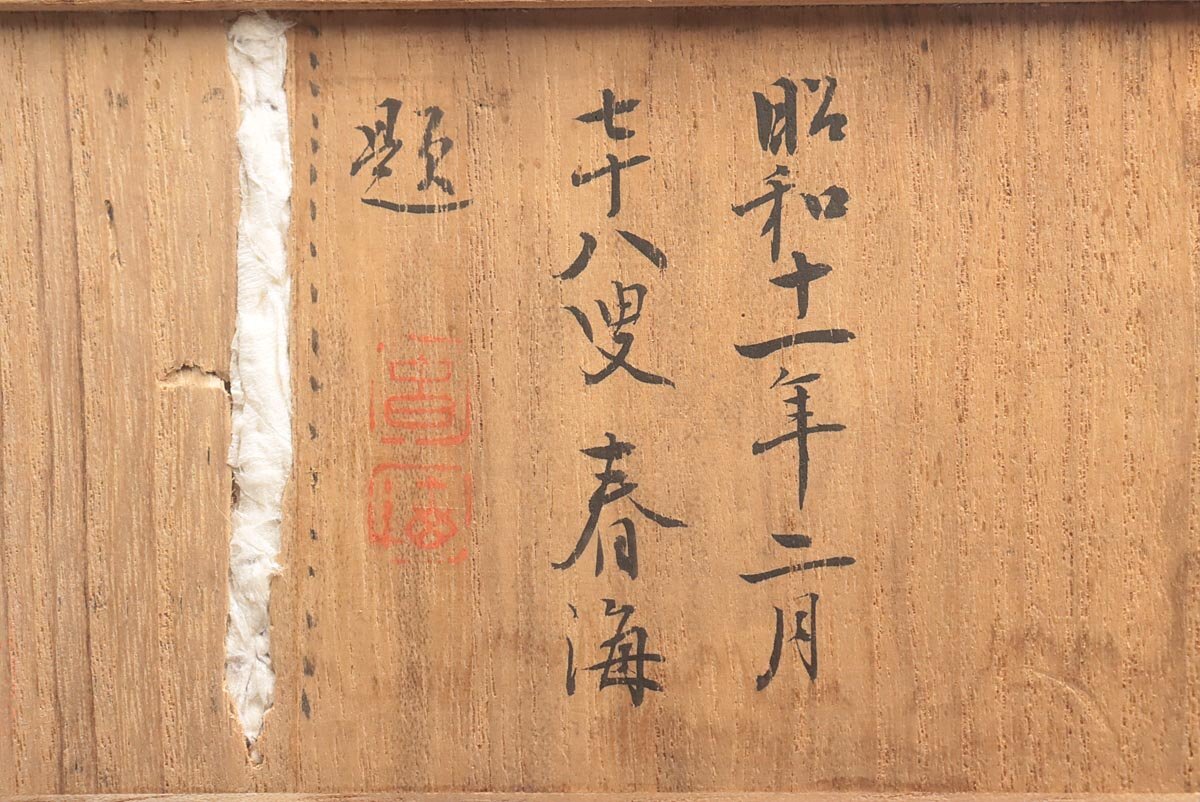 昭和十一年二月
七十八叟 春海
題
春海